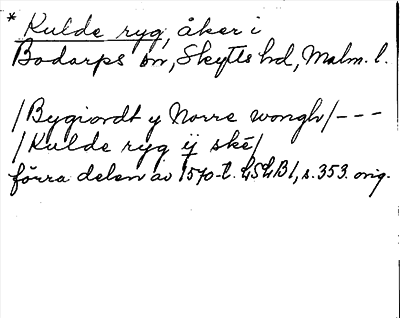 * Kulde ryg, åker i
Bodarps sn, Skytts hd, Malm. l.
/Bygiordt y Norre wongh/---
/Kulde ryg ij ske/
förra delen av 1570-t. LSLB1, s. 353. orig.